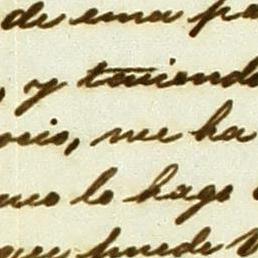 de ema pa
, y teniendo
ocio, me ha
mo lo hago
que puede